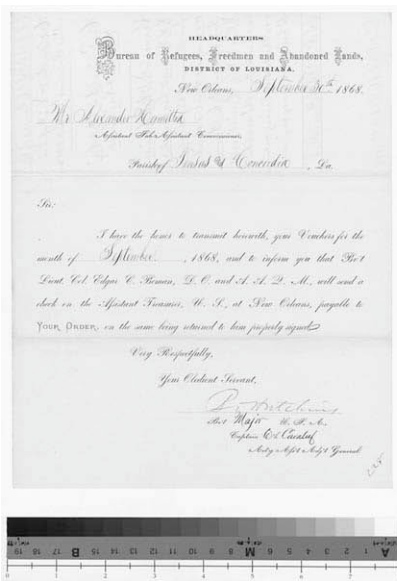 HEADQUARTERS
Bureau of Refugees, Freedmen and Abandoned Lands,
DISTRICT OF LOUISIANA.
New Orleans, September 30th 1868.
Mr Alexander Hamilton
Assistant Sub-Assistant Commissioner,
Parish of Tensas & Concordia, La.
Sir:
I have the honor to transmit herewith, your Vouchers for the
month of September, 1868, and to inform you that Bv't
Lieut. Col. Edgar C. Beman, D. O. and A. A. Q. M., will send a
check on the Assistant Treasurer, U. S., at New Orleans, payable to
YOUR ORDER, on the same being returned to him properly signed.
Very Respectfully,
Your Obedient Servant,
Hutchins
Bv't Major U. S. A.,
Captain
Act'g Ass't Adj't General